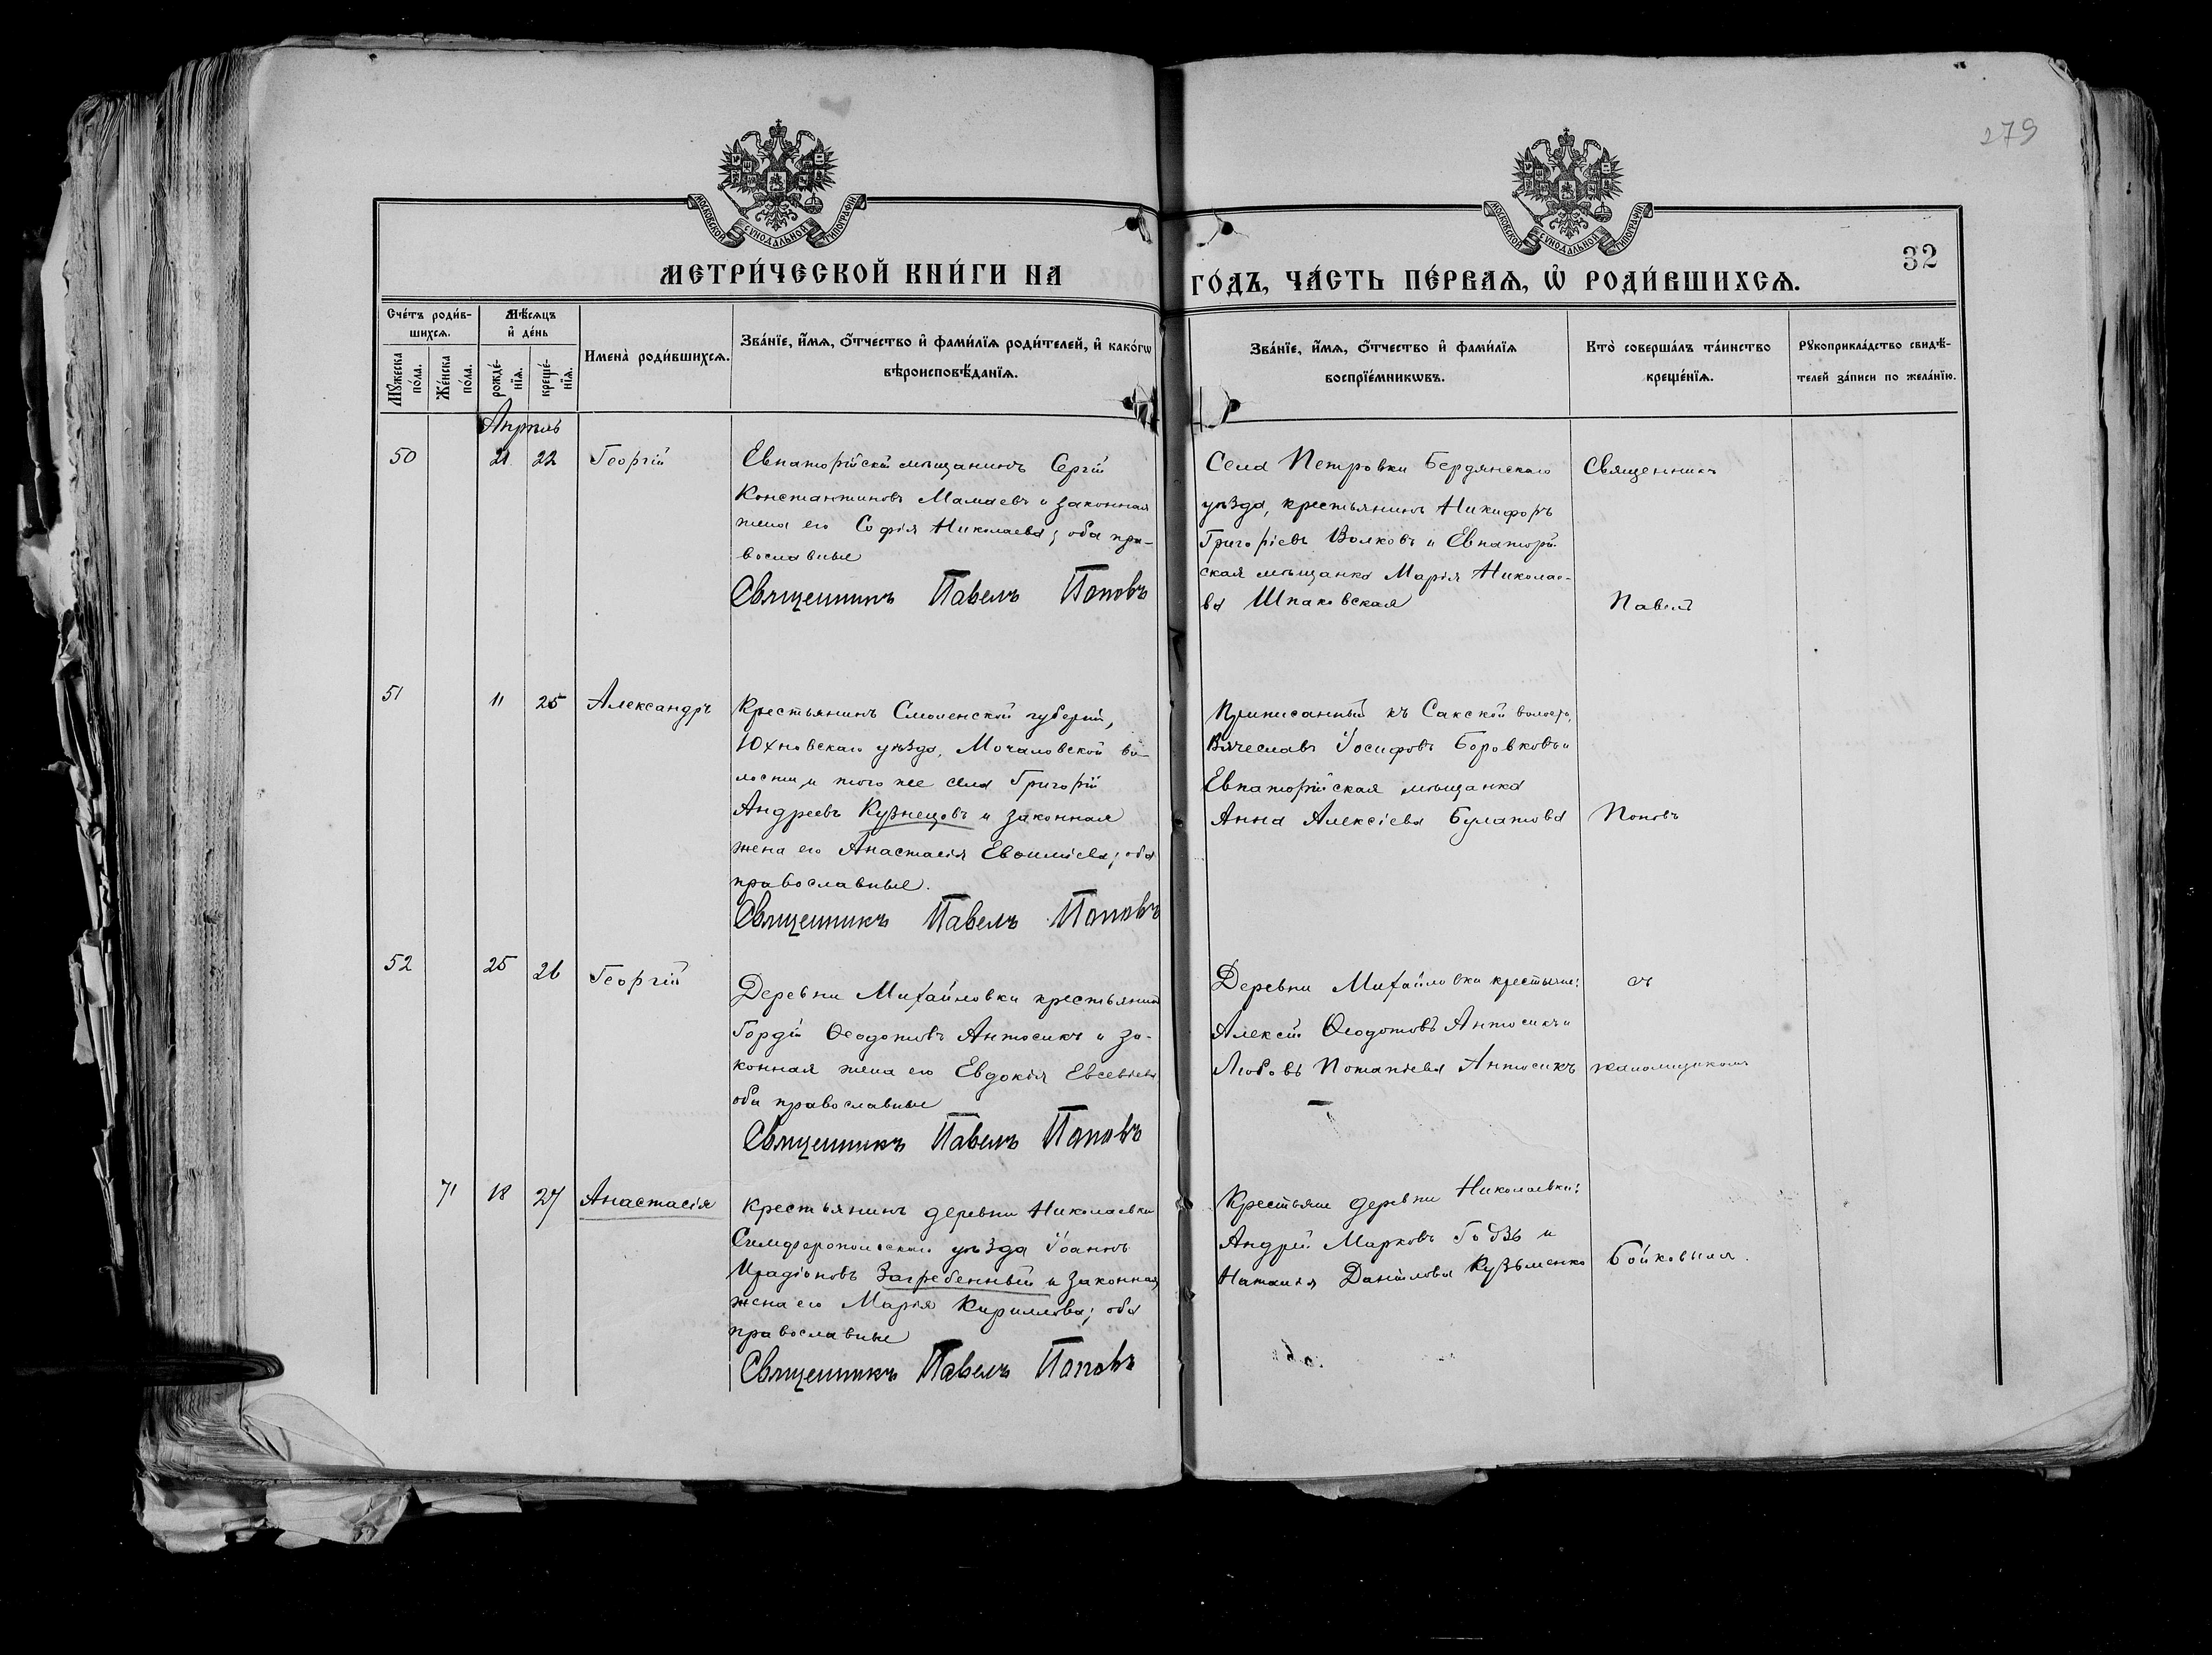 279
МОСКОВСКОЙ СѴНОДАЛЬНОЙ ТИПОГРАФІИ
МОСКОВСКОЙ СѴНОДАЛЬНОЙ ТИПОГРАФІИ
32
МЕТРИ́ЧЕСКОЙ КНИ́ГИ НА ГО́ДЪ, ЧА́СТЬ ПЕ́РВАѦ, Ѡ҆ РОДИ́ВШИХСѦ.
Сче́тъ роди́в-
шихсѧ.
Мꙋ́жеска
по́ла.
Же́нска
по́ла.
Мѣ́сѧцъ
и҆ де́нь
рожде́-
нїѧ.
креще́-
нїѧ.
Имена̀ роди́вшихсѧ.
Зва́нїе, и҆́мѧ, ѻ҆́тчество и҆ фами́лїѧ роди́телей, и҆ како́гѡ
вѣроисповѣ́данїѧ.
Зва́нїе, и҆́мѧ, ѻ҆́тчество и҆ фами́лїѧ
воспрїе́мникѡвъ.
Кто̀ соверша́лъ та́инство
креще́нїѧ.
Рꙋкоприкла́дство свидѣ́-
телей за́писи по жела́нїю.
Апрѣль
50 21 22 Георгій
Евпаторійскій мѣщанинъ Сергій
Константиновъ Мамаевъ и законная
жена его Софія Николаева; оба пра-
вославные
Священникъ Павелъ Поповъ
Села Петровки Бердянскаго
уѣзда, крестьянинъ Никифоръ
Григоріевъ Волковъ и Евпаторій-
ская мѣщанка Марія Николае-
ва Шпаковская
Священникъ
Павелъ
51 11 25 Александръ
Крестьянинъ Смоленской губерніи,
Юхновскаго уѣзда, Мочаловской во-
лости и того же села Григорій
Андреевъ Кузнецовъ и законная
жена его Анастасія; оба
православные.
Священникъ Павелъ Поповъ
Приписанный къ Сакской волости,
Вячеславъ Іосифовъ Боровковъ и
Евпаторійская мѣщанка
Анна Алексіева Булатова
Поповъ
52 25 26 Георгій
Деревни Михайловки крестьянинъ
Гордій Ѳеодотовъ Антосикъ и за-
конная жена его Евдокія Евсевіева
оба православные
Священникъ Павелъ Поповъ
Деревни Михайловки крестьяне:
Алексій Ѳеодотовъ Антосикъ и
Любовь Потапіева Антосикъ
съ
псаломщикомъ
71 18 27 Анастасія
Крестьянинъ деревни Николаевки
Симферопольскаго уѣзда Іоаннъ
Ирадіоновъ Загребенный и законная
жена его Марія Кириллова; оба
православные
Священникъ Павелъ Поповъ
Крестьяне деревни Николаевки:
Андрей Марковъ и
Наталія Даніилова Кузьменко
Бойковымъ.